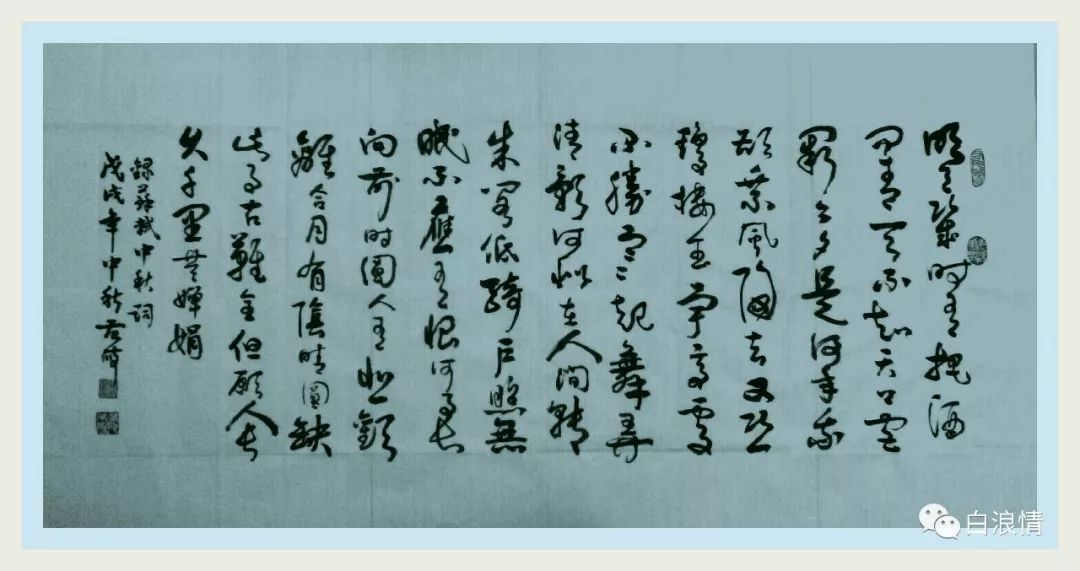 明月幾时有把酒
问青天不知天上宫
闕今夕是何年我
欲乘風归去又恐
瓊楼玉宇高處
不勝寒起舞弄
清影何似在人间转
朱阁低綺户照無
眠不應有恨何事长
向别时圓人有悲歡
離合月有陰晴圓缺
此事古難全但願人长
久千里共嬋娟
録蘇軾中秋詞
戊戌年中秋
白浪情